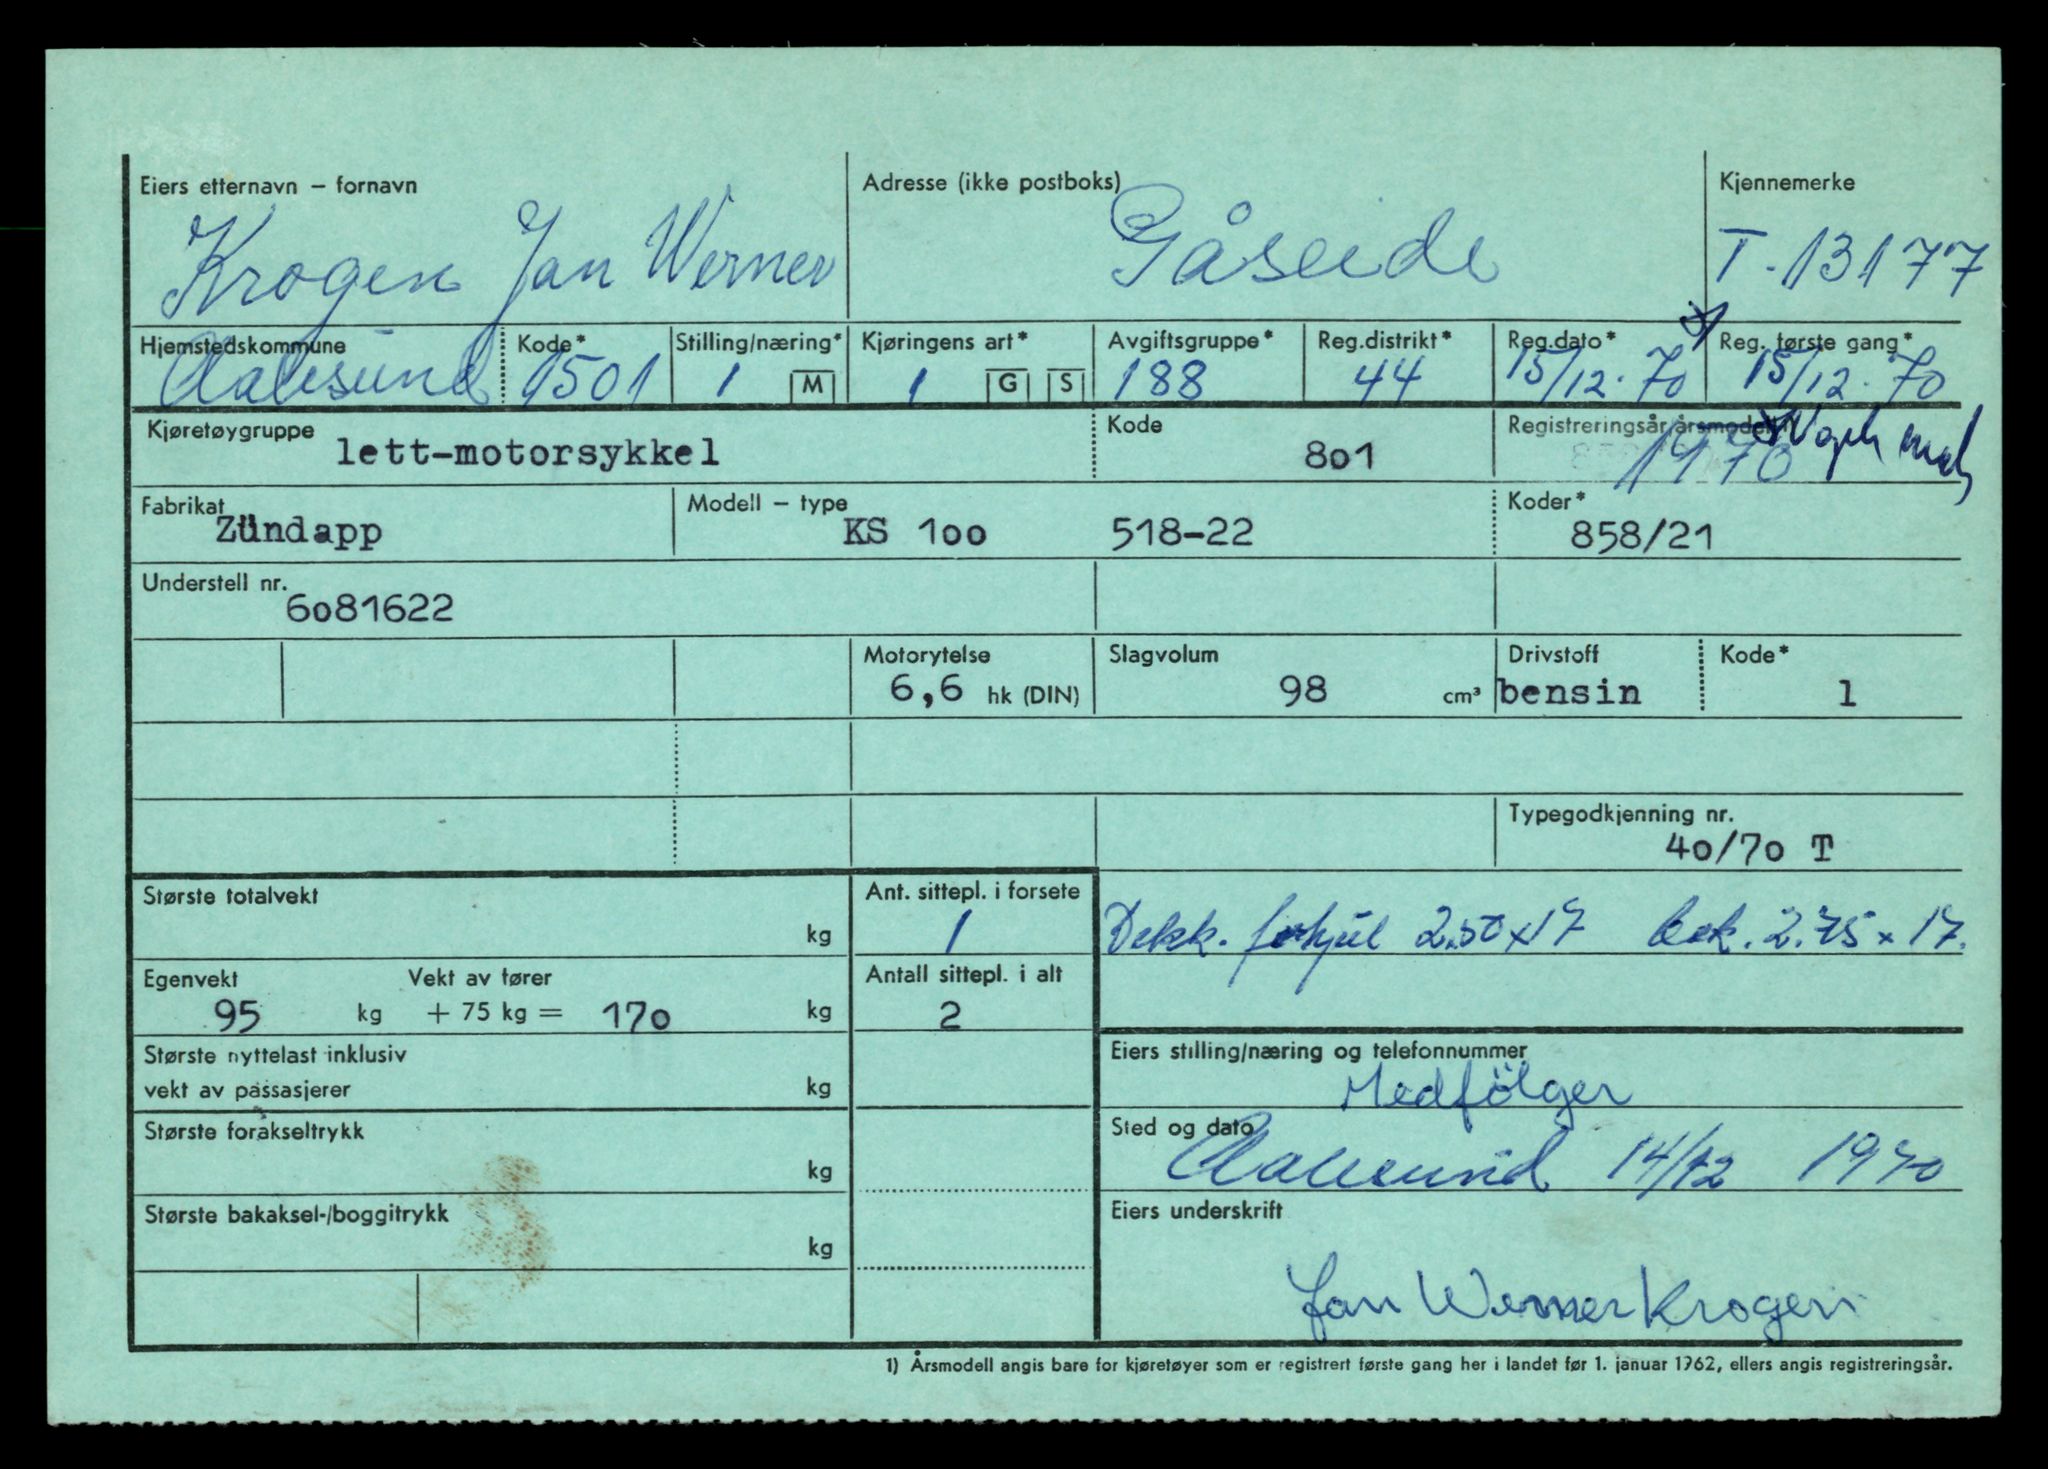 Eiers etternavn – fornavn Adresse (ikke postboks) Kjennemerke
Krogen Jan Werner Gåseide T-13177
Hjemstedskommune Kode* Stilling/næring* Kjøringens art* Avgiftsgruppe* Reg.distrikt* Reg.dato* Reg. første gang*
Aalesund 1501 1 M 1 G S 188 44 15/12.70 15/12.70
Kjøretøygruppe Kode Registreringsår/årsmodell
lett-motorsykkel 801 1970
Fabrikat Modell – type Koder*
Zündapp KS 100 518-22 858/21
Understell nr.
6081622
Motorytelse Slagvolum Drivstoff Kode*
6,6 hk (DIN) 98 cm³ bensin 1
Typegodkjenning nr.
40/70 T
Største totalvekt kg Ant. sittepl. i forsete
1 Dekk. forhjul 2.50x17 bak. 2.75x17.
Egenvekt Vekt av fører Antall sittepl. i alt
95 kg + 75 kg = 170 kg 2
Største nyttelast inklusiv Eiers stilling/næring og telefonnummer
vekt av passasjerer kg Medfölger
Største forakseltrykk kg Sted og dato
Aalesund 14/12 1970
Største bakaksel-/boggitrykk kg Eiers underskrift
Jan Werner Krogen
1) Årsmodell angis bare for kjøretøyer som er registrert første gang her i landet før 1. januar 1962, ellers angis registreringsår.